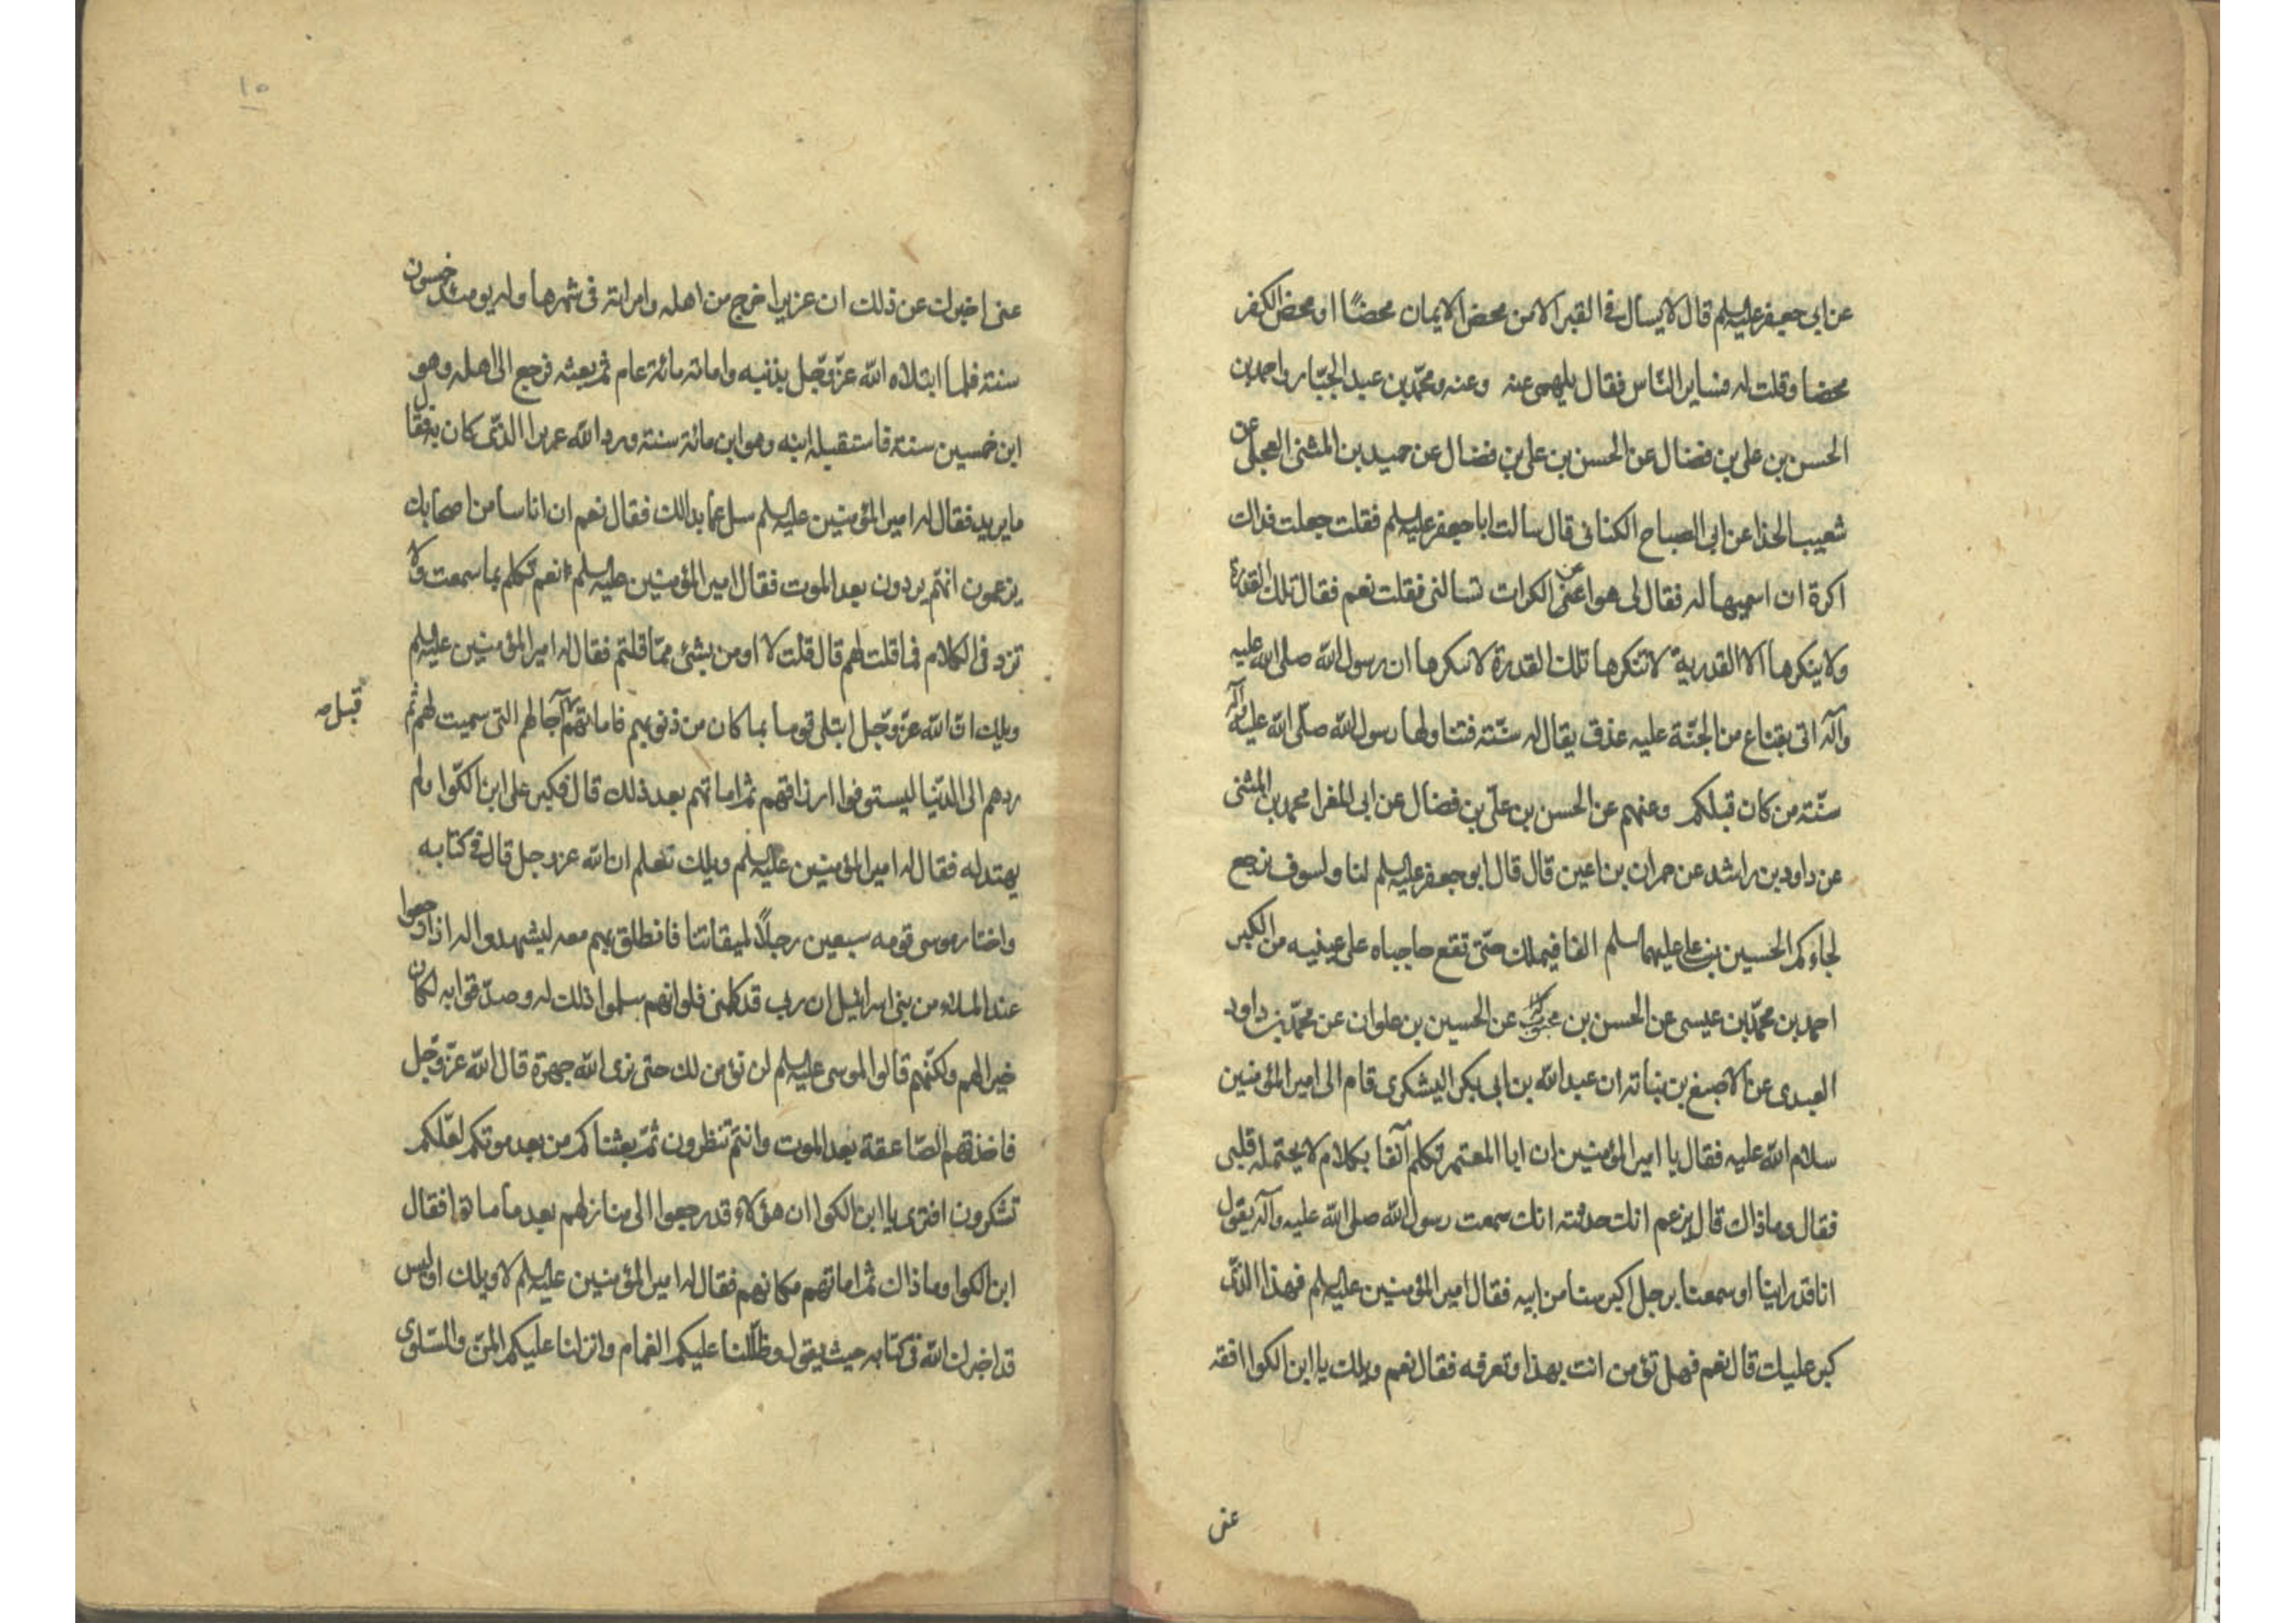 عن ابي جعفر عليه السلم قال لا يسال في القبر الا من محض الايمان محضًا او محض الكفر
محضا وقلت له فساير الناس فقال يلهى عنه وعنه ومحمد بن عبد الجبار واحمد بن
الحسن بن علي بن فضال عن الحسن بن علي بن فضال عن حميد بن المثنى العجلي عن
شعيب الحذا عن ابي الصباح الكناني قال سالت ابا جعفر عليه السلم فقلت جعلت فداك
اكره ان اسميها له فقال لي هو اعن عن الكرات تسالني فقلت نعم فقال تلك القدرة
ولا ينكرها الا القدرية لا تنكرها تلك القدرة لا تنكرها ان رسول الله صلى الله عليه
وآله اتى بقناع من الجنة عليه عذق يقال له سنته فتناولها رسول الله صلى الله عليه وآله
سنته من كان قبلكم وعنهم عن الحسن بن علي بن فضال عن ابي المغرا محمد بن المثنى
عن داود بن راشد عن حمران بن اعين قال قال ابو جعفر عليه السلم لنا ولسوف يرجع
لجاءكم الحسين بن علي عليهما السلم الفا فيملك حتى تقع حاجباه على عينيه من الكبر
احمد بن محمد بن عيسى عن الحسن بن محبوب عن الحسين بن علوان عن محمد بن داود
العبدي عن الاصبغ بن نباته ان عبد الله بن ابي بكر اليشكري قام الى امير المؤمنين
سلام الله عليه فقال يا امير المؤمنين ان ابا المعتمر تكلم آنفا بكلام لا يحتمله قلبي
فقال وما ذاك قال يزعم انك حدثته انك سمعت رسول الله صلى الله عليه وآله يقول
انا قد راينا او سمعنا برجل اكبر سنا من ابيه فقال امير المؤمنين عليه السلم فهذا الذي
كبر عليك قال نعم فهل تؤمن انت بهذا وتعرفه فقال نعم ويلك يا ابن الكوا افقه
عنى
١٥
عنى اخبرك عن ذلك ان عزيرا خرج من اهله وامراته في شهرها وله يومئذ خمسون
سنته فلما ابتلاه الله عز وجل بذنبه واماته مائة عام ثم بعثه فرجع الى اهله وهو
ابن خمسين سنة فاستقبله ابنه وهو ابن مائة سنته ورد الله عزيرا الذي كان به فقال
ما يريد فقال له امير المؤمنين عليه السلم سل عما بدالك فقال نعم ان اناسا من اصحابك
يزعمون انهم يردون بعد الموت فقال امير المؤمنين عليه السلم نعم تكلم بما سمعت ولا
تزد في الكلام فما قلت لهم قال قلت لا اومن بشئ مما قلتم فقال له امير المؤمنين عليه السلم
ويلك ان الله عز وجل ابتلى قوما بما كان من ذنوبهم فاماتهم آجالهم التي سميت لهم ثم
قبل صه
ردهم الى الدنيا ليستوفوا ارزاقهم ثم اماتهم بعد ذلك قال فكبر على ابن الكوا ولم
يهتد له فقال له امير المؤمنين عليه السلم ويلك تعلم ان الله عز وجل قال في كتابه
واختار موسى قومه سبعين رجلًا لميقاتنا فانطلق بهم معه ليشهدوا له اذا رجعوا
عند الملاء من بني اسرائيل ان ربي قد كلمني فلو انهم سلموا ذلك له وصدقوا به لكان
خيرا لهم ولكنهم قالوا لموسى عليه السلم لن نؤمن لك حتى نرى الله جهرة قال الله عز وجل
فاخذتهم الصاعقة بعد الموت وانتم تنظرون ثم بعثناكم من بعد موتكم لعلكم
تشكرون افترى يا ابن الكوا ان هؤلاء قد رجعوا الى منازلهم بعد ما ماتوا فقال
ابن الكوا وما ذاك ثم اماتهم مكانهم فقال له امير المؤمنين عليه السلم لا ويلك اوليس
قد اخبرك الله في كتابه حيث يقول وظللنا عليكم الغمام وانزلنا عليكم المن والسلوى